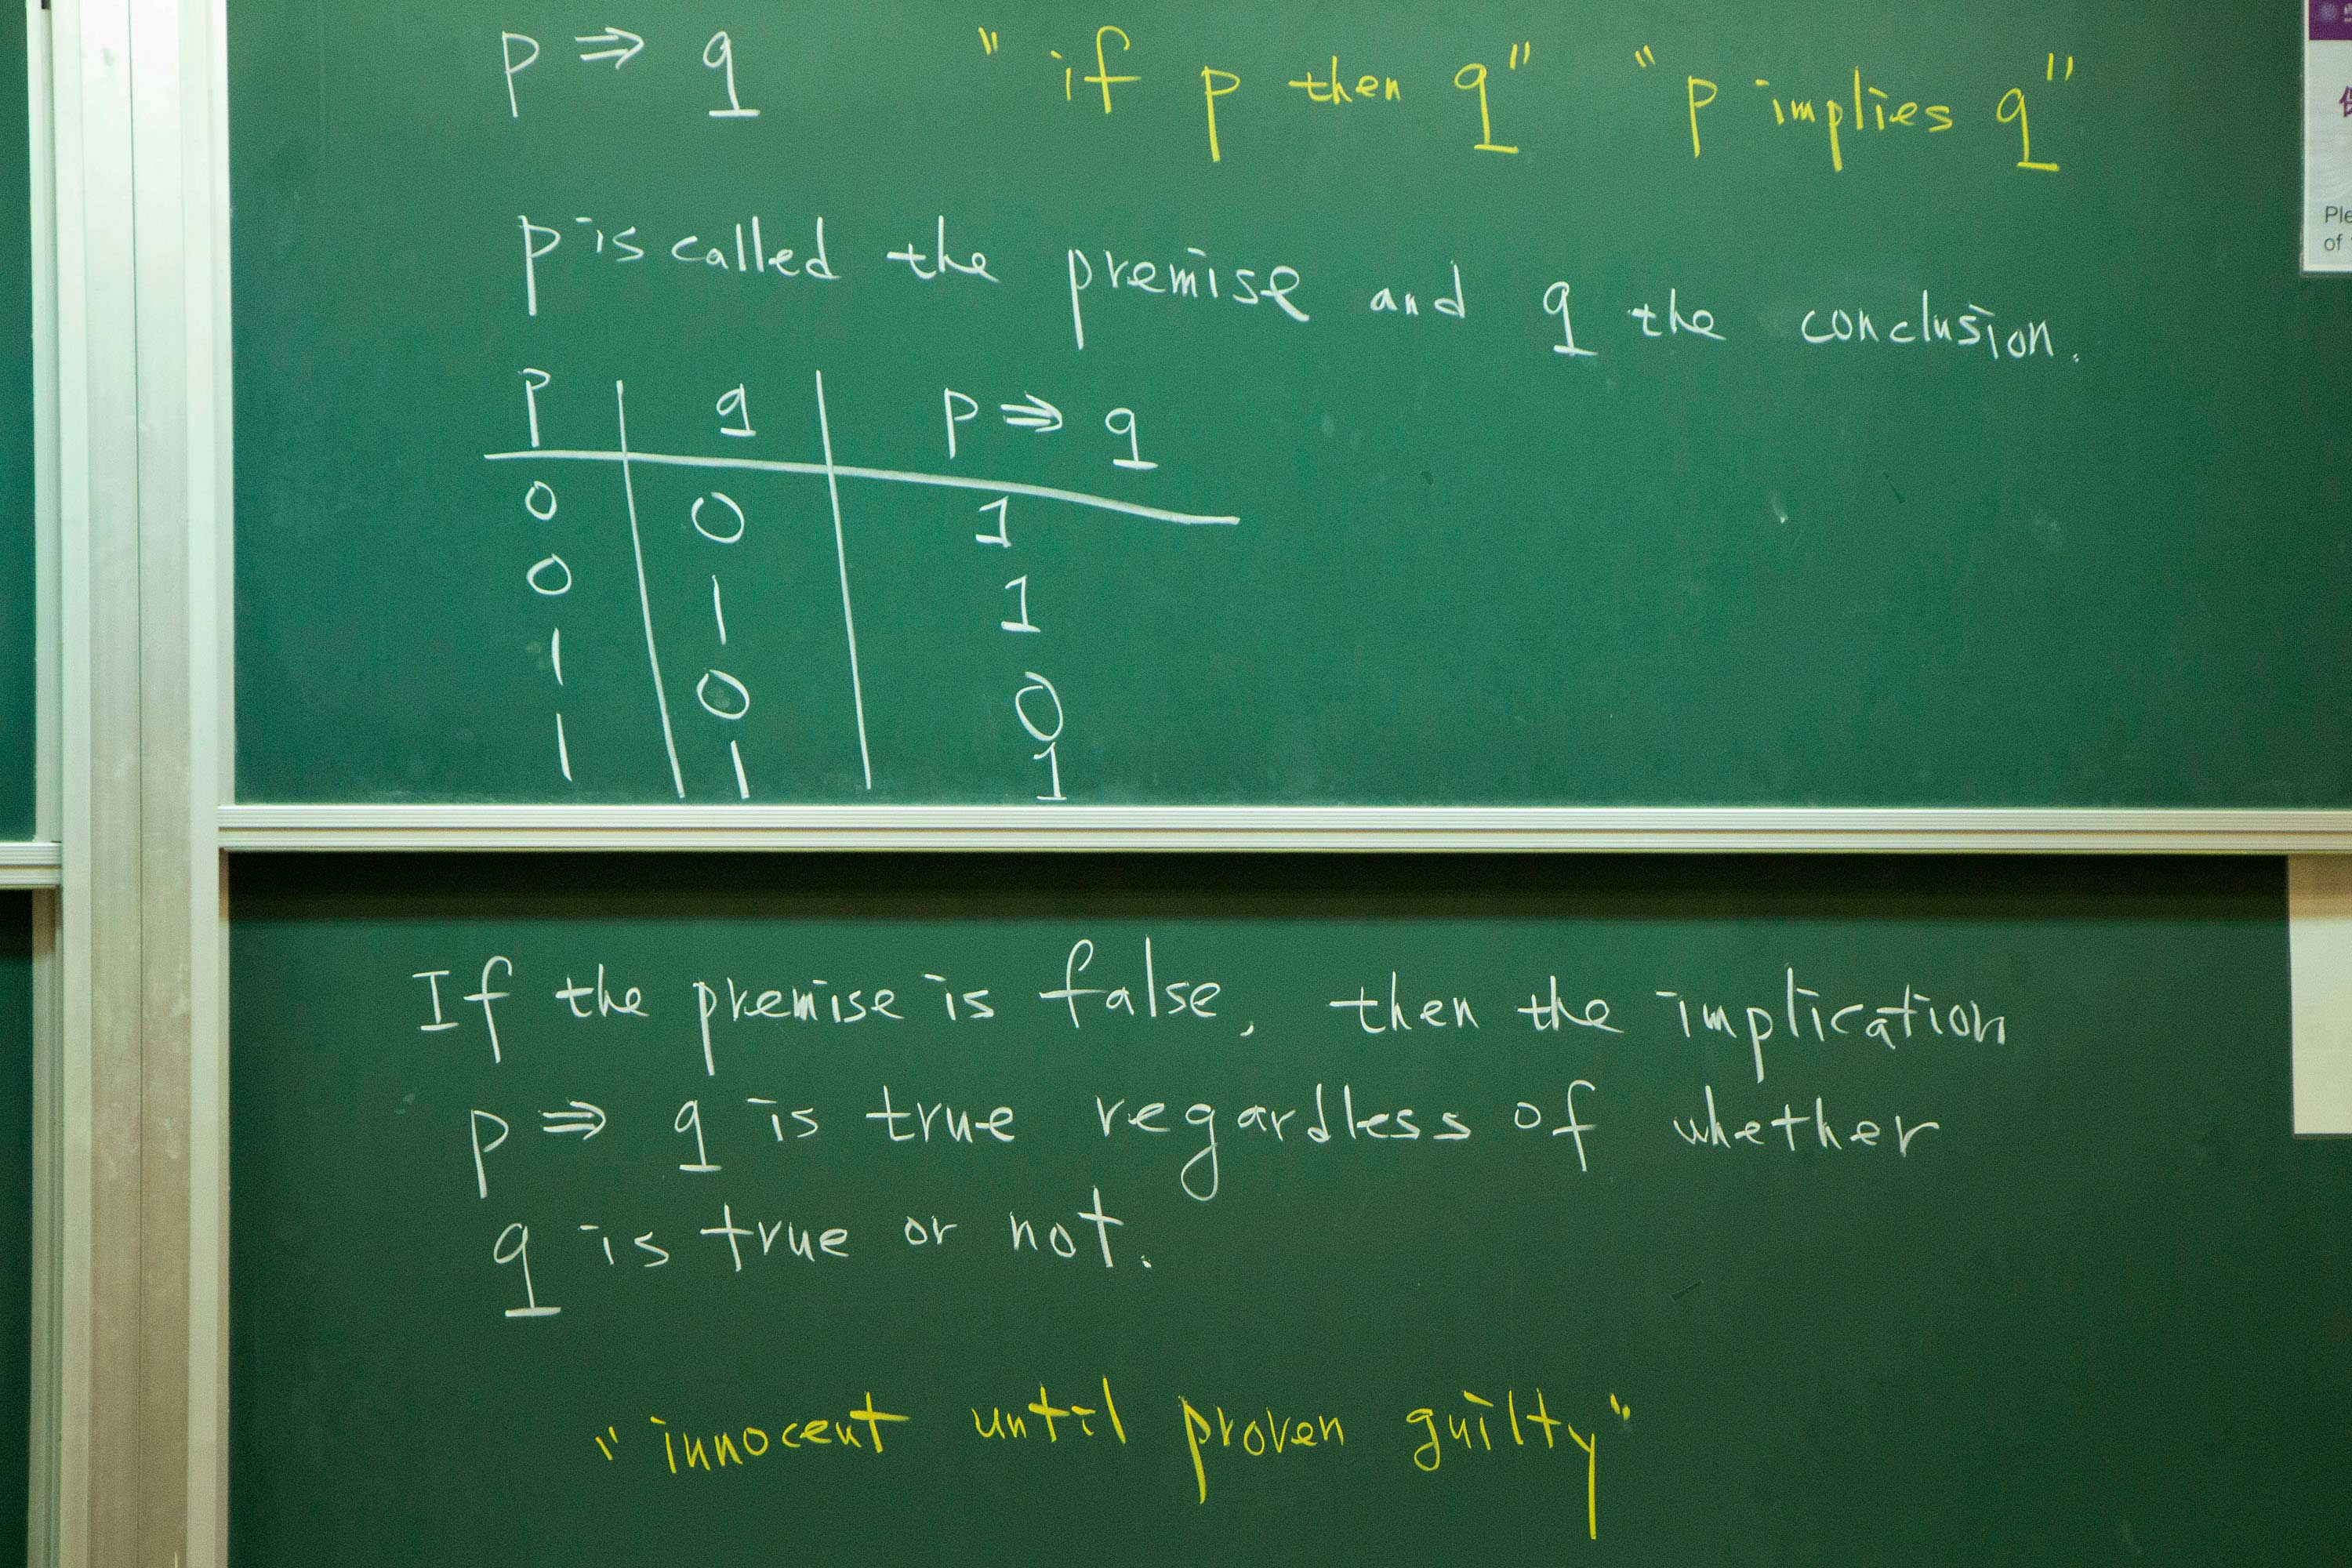 p ⇒ q "if p then q" "p implies q"
p is called the premise and q the conclusion.
p q p ⇒ q
0 0 1
0 1 1
1 0 0
1 1 1
If the premise is false, then the implication
p ⇒ q is true regardless of whether
q is true or not.
"innocent until proven guilty"
of